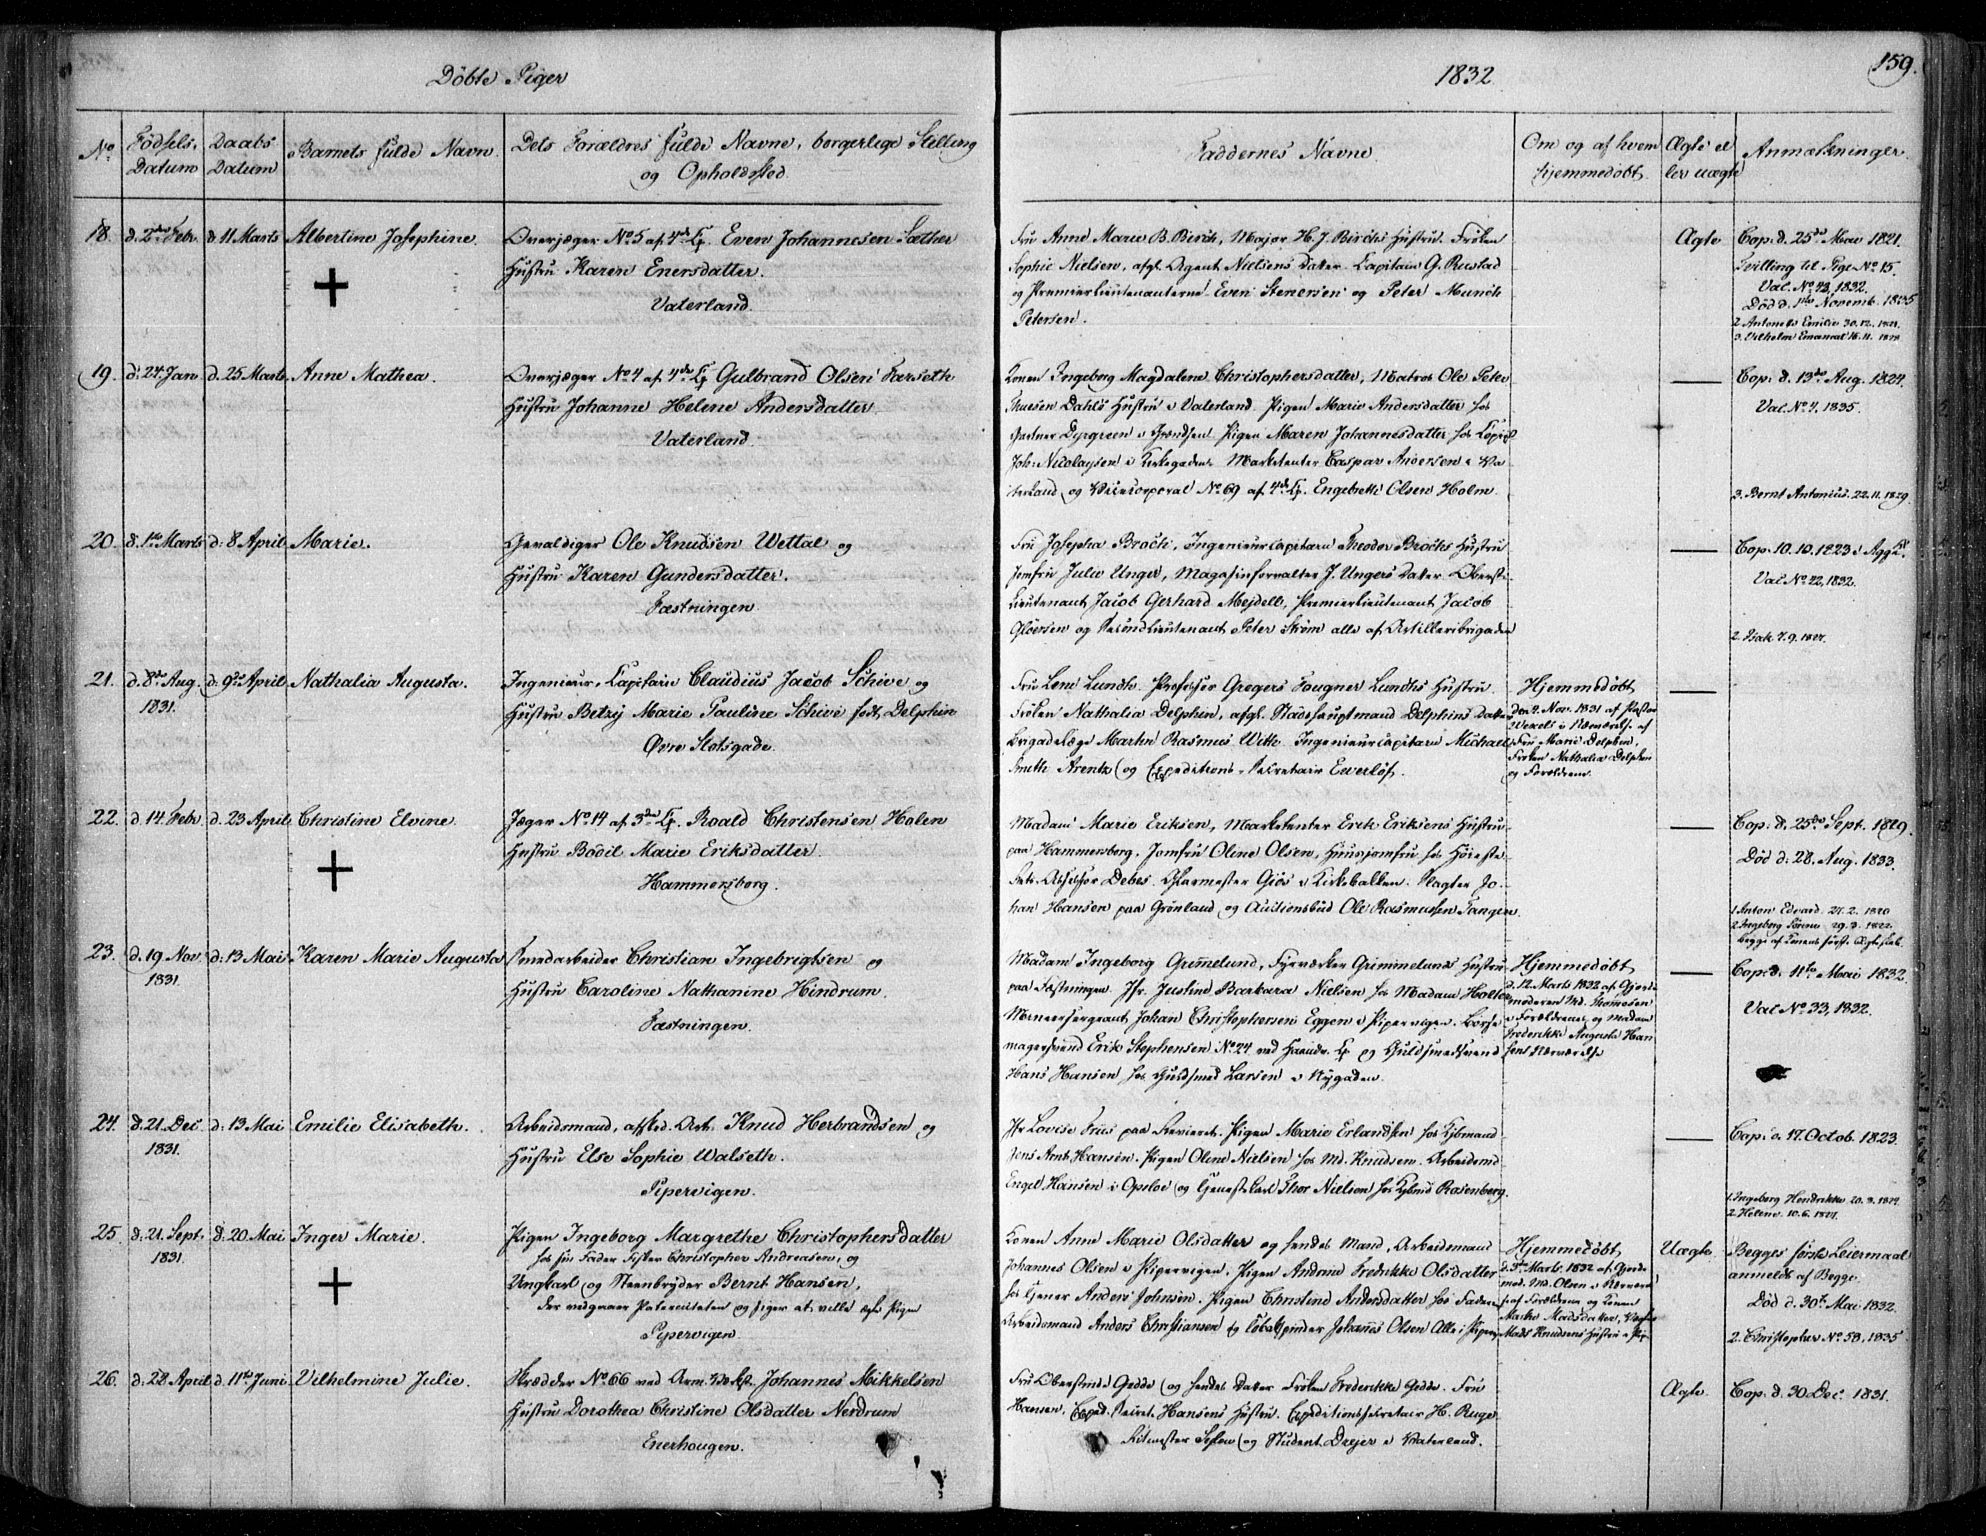 Døbte Piger
1832
159.
No
Fødsels Datum
Daabs Datum
Barnets fulde Navn
Dets Forældres fulde Navne, borgerlige Stilling og Opholdssted
Faddernes Navne
Om og af hvem hjemmedøbt
Ægte eller uægte
Anmærkninger
18. d. 2den Febr. d. 11 Marts Albertine Josephine.
Overjæger No 5 af 4de Cp. Even Johannesen Sæther
Hustru Karen Enersdatter.
Vaterland.
Fru Anne Marie B. Birch, Major H. J. Birchs Hustru. Frøken
Sophie Nielsen, afgl. Agent Nielsens Datter. Capitain G. Rustad
og Premierlieutenanterne Even Stenersen og Peter Munch
Petersen.
Ægte
Cop. d. 25de Mai 1821.
Tvilling til Pige No 15.
Vac. No 43, 1832.
Død d. 1ste Novemb. 1835
2. Antonette Emilie 30.12.
3. Vilhelm Emanuel 16.11.
19. d. 24 Jan. d. 25 Marts Anne Mathea.
Overjæger No 4 af 4de Cp. Gulbrand Olsen Farseth
Hustru Johanne Helene Andersdatter
Vaterland.
Konen Ingeborg Magdalene Christophersdatter, Matros Ole Peter
Thuesen Dahls Hustru i Vaterland. Pigen Marie Andersdatter hos
Gartner Dyrgreen i Grændsen. Pigen Maren Johannesdatter hos
Joh: Nicolaysen i Kirkegaden. Marketenter Caspar Andersen i Va-
terland og Vicecorporal No 69 af 4de Cp. Engebrett Olsen Holm.
Cop. d. 13de Aug. 1824.
Vac. No 4. 1835.
3. Bernt Antonius. 22.11.1829.
20. d. 1ste Marts d. 8 April Marie.
Gevaldiger Ole Knudsen Wettal og
Hustru Karen Gundersdatter.
Fæstningen.
Fru Josepha Broch, Ingenieurcapitain Theodor Brochs Hustru
Jomfru Julie Unger, Magasinforvalter J. Ungers Datter. Oberst-
Lieutenant Jacob Gerhard Mejdell, Premierlieutenant Jacob
Gløersen og Secondlieutenant Peter Strøm alle af Artilleribrigaden
Cop. 10.10.1823 i
Vac. No 42, 1832.
2. Isak 7.9.1827.
21. d. 8de Aug. 1831. d. 9de April Nathalia Augusta.
Ingenieur, Capitain Claudius Jacob Schive og
Hustru Betzy Marie Pauline Schive født Delphin
Øvre Slotsgade.
Fru Lene Lundh. Professor Gregers Fougner Lundhs Hustru.
Frøken Nathalia Delphin, afgl. Stadshauptmand Delphins Datter
Brigadelæge Martin Rasmus Witt. Ingenieurcapitain Michael
Smith Arentz og Expeditions-Secretair Ewerløf.
Hjemmedøbt
den 2. Nov. 1831 af Pastor
Wexels i Nærværelse af
Fru Marie Delphin,
Frøken Nathalia Delphin
og Forældrene.
22. d. 14. Febr. d. 23 April Christine Elvine.
Jæger No 14 af 3die Cp. Roald Christensen Holen
Hustru Bodil Marie Eriksdatter.
Hammersborg.
Madam Marie Eriksen, Marketenter Erik Eriksens Hustru
paa Hammersborg. Jomfru Oline Olsen, Huusjomfru hos Høieste-
rets Assessor Debes. Glarmester Giøs i Kirkebakken. Slagter Jo-
han Hansen paa Grønland og Auctionsbud Ole Rasmussen Tangen.
Cop. d. 25de Sept. 1829.
Død d. 28. Aug. 1833.
1. Anton Edvard. 27.2. 1820
2. Ingeborg 29.3. 1822.
begge af Konens først. Ægteskab.
23. d. 19 Nov. 1831. d. 13 Mai Karen Marie Augusta
Smedarbeider Christian Ingebrigtsen og
Hustru Caroline Nathanine Hindrum.
Fæstningen.
Madam Ingeborg Grimelund, Fyrværker Grimmelunds Hustru
paa Fæstningen. Jfr. Justine Barbara Nielsen hos Madam Holter
Mineersergeant Johan Christophersen Eggen i Pipervigen. Børse-
magersvend Erik Stephensen No 24 ved Haandv. Cp. og Guldsmedsvend
Hans Hansen hos Guldsmed Larsen i Nygaden.
Hjemmedøbt
d. 12. Marts 1832 af Gjord-
moderen Md. Thomesen
i Forældrenes og Madam
Frederikke Augusta Han-
sens Nærværelse
Cop. d. 11te Mai 1832.
Vac. No 33, 1832.
24. d. 21. Dec. 1831. d. 13 Mai Emilie Elisabeth.
Arbeidsmand, afsked. Art. Knud Herbrandsen og
Hustru Else Sophie Walseth.
Pipervigen.
Jfr. Lovise Friis paa Revieret. Pigen Marie Erlandsen hos Kjbmand
Jens Arnt Hansen. Pigen Oline Nielsen hos Md. Knudsen. Arbeidsmd.
Engel Hansen i Opsloe og Tjenestkarl Thor Nielsen hos Kjbmd Rosenberg.
Cop. d. 17. Octob. 1823.
1. Ingeborg Hendrikke 20.3.
2. Helene. 10.6.
25. d. 21. Sept. 1831. d. 20 Mai Inger Marie.
Pigen Ingeborg Margrethe Christophersdatter
hos sin Fader Fisker Christopher Andreasen, og
Ungkarl og Steenbryder Bernt Hansen,
der vedgaaer Paterniteten og siger at ville ægte Pigen
Pipervigen.
Konen Anne Marie Olsdatter og hendes Mand, Arbeidsmand
Johannes Olsen i Pipervigen. Pigen Andrine Fredrikke Olsdatter
hos Gjener Anders Johnsen. Pigen Christine Andersdatter hos Faderen
Arbeidsmand Anders Christiansen og Tobakspinder Johannes Olsen Alle i Piperv.
Hjemmedøbt
d. 3die Marts 1832 af Gjorde-
mod. Md. Olsen i Nærvæ-
relse af Forældrene og Konen
Marthe Madsdatter,
Mads Knudsens Hustru i Pip.
Uægte.
Begges første Leiermaal
anmeldt af Begge.
Død d. 30te Mai 1832.
2. Christopher No 58, 1835
26. d. 28 April d. 11te Juni Vilhelmine Julie.
Skrædder No 66 ved Arm. Værkst. Johannes Mikkelsen
Hustru Dorothea Christine Olsdatter Nerdrum
Enerhougen.
Fru Oberstinde Gedde og hendes Datter Frøken Frederikke Gedde. Fru
Hansen, Exped. Secret. Hansens Hustru. Expeditionssecretair H. Ruge.
Ritmester og Student Dreyer i Vaterland.
Ægte.
Cop. d. 30 Dec. 1831.